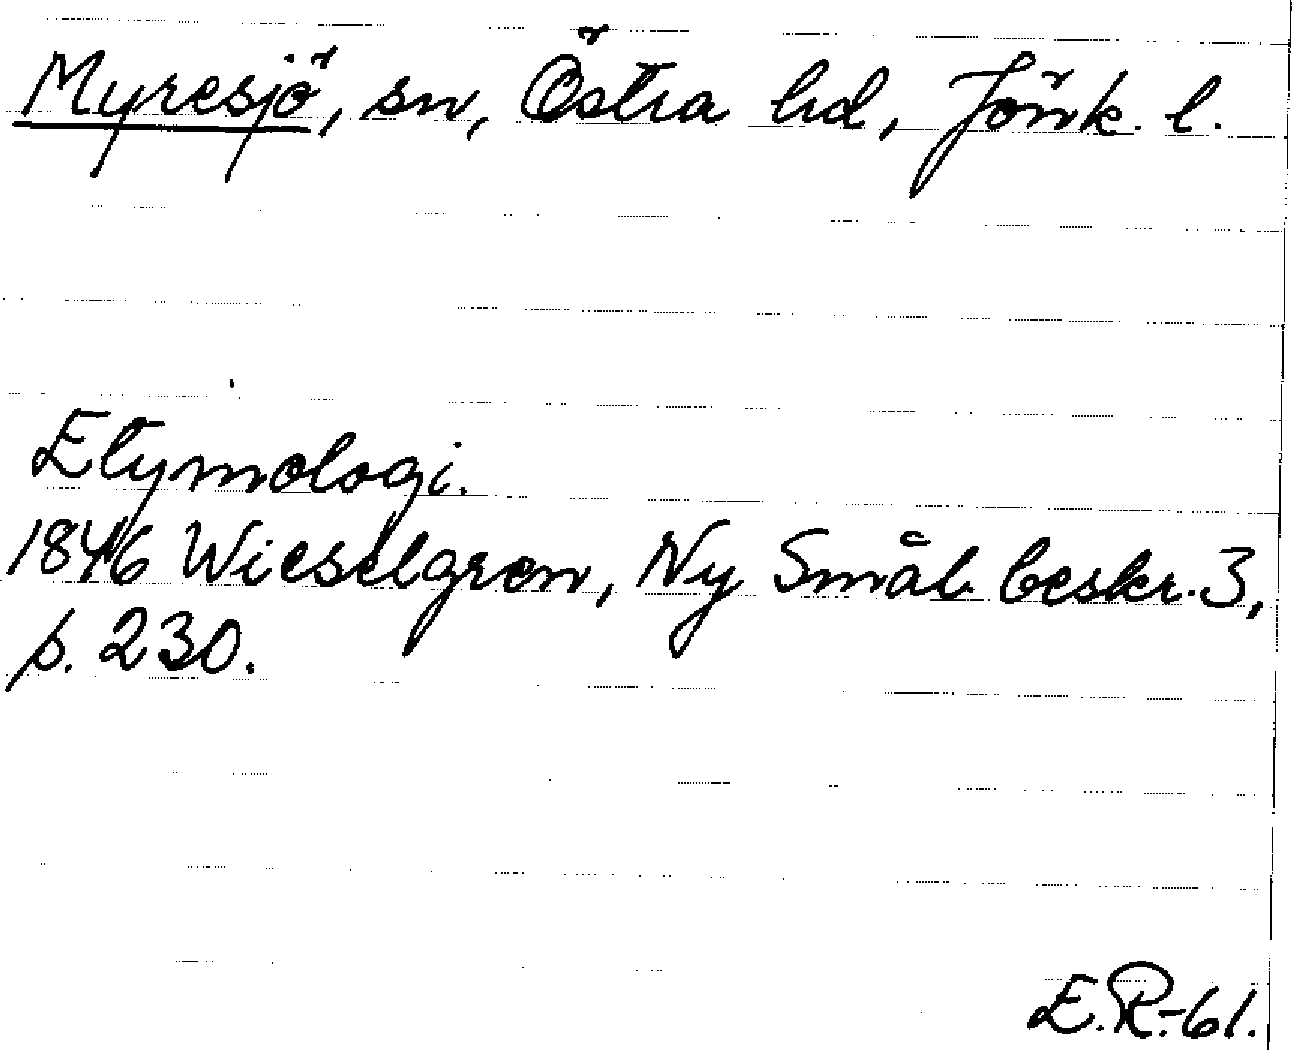 Myresjö, sn, Östra hd, Jönk. l.
Etymologi.
1846 Wieselgren, Ny Smål. beskr. 3,
s. 230.
E.R.-61.